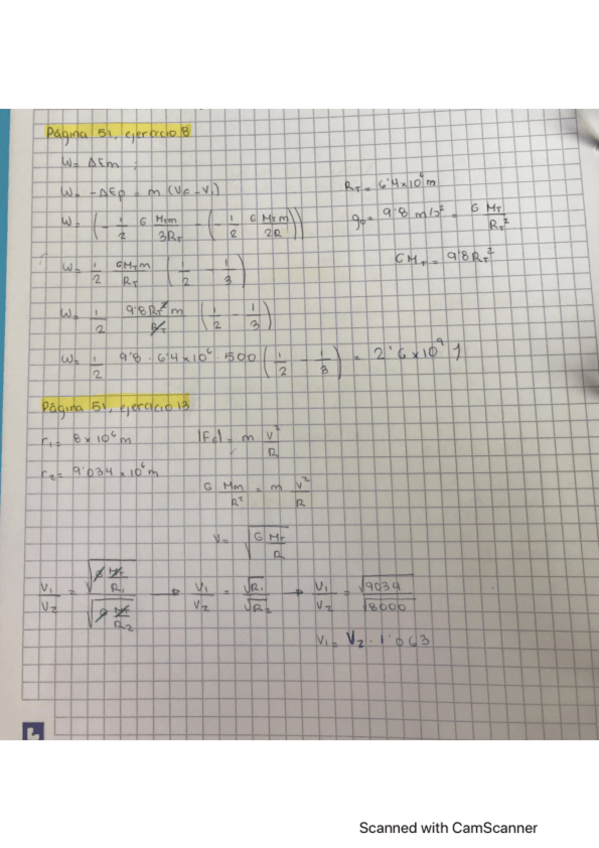 Página 51, ejercicio 8
W= ΔEm ;
W= -ΔEp = m (Vf - Vi)
R_T = 6'4×10⁶ m
W= (- 1/2 G M_T m / 3R_T - (- 1/2 G M_T m / 2R))
g₀ = 9'8 m/s² = G M_T / R_T²
W= 1/2 GM_T m / R_T (1/2 - 1/3)
GM_T = 9'8R_T²
W= 1/2 9'8R_T² m / R_T (1/2 - 1/3)
W= 1/2 9'8 · 6'4×10⁶ · 500 (1/2 - 1/3) = 2'6×10⁹ J
Página 51, ejercicio 13
r₁= 8×10⁶ m |Fc| = m v²/R
r₂= 9'034×10⁶ m
G Mm/R² = m v²/R
V= √(G M_T/R)
V₁/V₂ = √(G M_T/R₁) / √(G M_T/R₂) → V₁/V₂ = √R₁/√R₂ → V₁/V₂ = √9034/√8000
V₁= V₂ · 1'063
Scanned with CamScanner